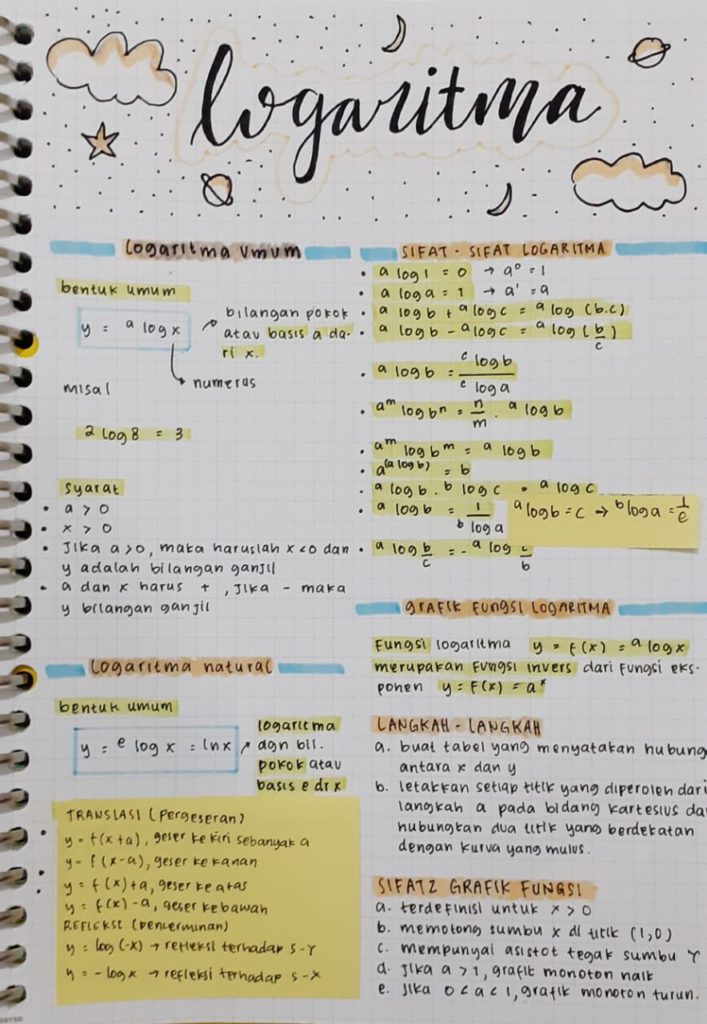 logaritma
Logaritma Umum
bentuk umum
y = ᵃ log x
bilangan pokok
atau basis a da-
ri x.
numerus
misal
² log 8 = 3
syarat
• a > 0
• x > 0
• Jika a > 0, maka haruslah x < 0 dan
y adalah bilangan ganjil
• a dan x harus + , Jika - maka
y bilangan ganjil
Logaritma natural
bentuk umum
y = ᵉ log x = ln x
logaritma
dgn bil.
pokok atau
basis e dr x
TRANSLASI (Pergeseran)
y = f(x+a), geser ke kiri sebanyak a
y = f(x-a), geser ke kanan
y = f(x)+a, geser ke atas
y = f(x)-a, geser ke bawah
REFLEKSI (Pencerminan)
y = log(-x) → refleksi terhadap s-Y
y = -log x → refleksi terhadap s-X
SIFAT - SIFAT LOGARITMA
• ᵃ log 1 = 0 → a⁰ = 1
• ᵃ log a = 1 → a¹ = a
• ᵃ log b + ᵃ log c = ᵃ log (b.c)
• ᵃ log b - ᵃ log c = ᵃ log (b/c)
• ᵃ log b = ᶜ log b / ᶜ log a
• aᵐ log bⁿ = n/m . ᵃ log b
• aᵐ log bᵐ = ᵃ log b
• a^(ᵃ log b) = b
• ᵃ log b . ᵇ log c = ᵃ log c
• ᵃ log b = 1 / ᵇ log a
ᵃ log b = c → ᵇ log a = 1/c
• ᵃ log b/c = - ᵃ log c/b
GRAFIK FUNGSI LOGARITMA
Fungsi logaritma y = f(x) = ᵃ log x
merupakan fungsi invers dari fungsi eks-
ponen y = F(x) = aˣ
LANGKAH - LANGKAH
a. buat tabel yang menyatakan hubung
antara x dan y
b. letakkan setiap titik yang diperoleh dari
langkah a pada bidang kartesius da
hubungkan dua titik yang berdekatan
dengan kurva yang mulus.
SIFAT2 GRAFIK FUNGSI
a. terdefinisi untuk x > 0
b. memotong sumbu x di titik (1,0)
c. mempunyai asistot tegak sumbu Y
d. Jika a > 1, grafik monoton naik
e. Jika 0 < a < 1, grafik monoton turun.